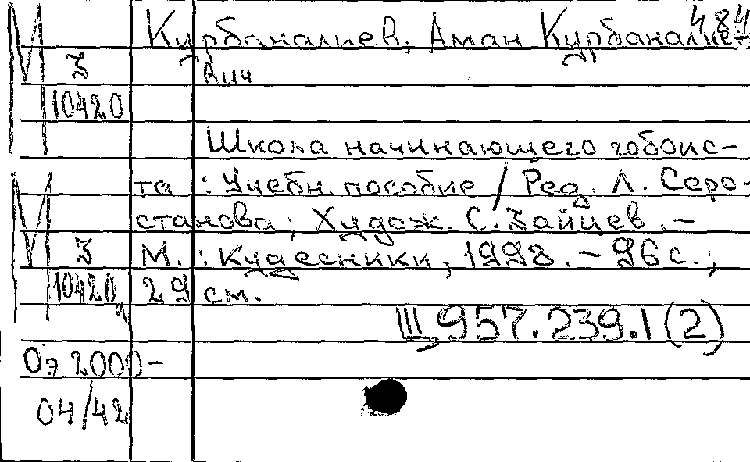 484
Курбаналиев, Аман Курбаналие-
М З
вич
10420
Школа начинающего гобоис-
та : Учебн. пособие / Ред. Л. Серо-
станова; Худож. С. Зайцев. –
М З
М. : Кудесники, 1998. – 96 с.;
10420а 29 см.
Щ 957.239.1(2)
Оэ 2000-
04/42